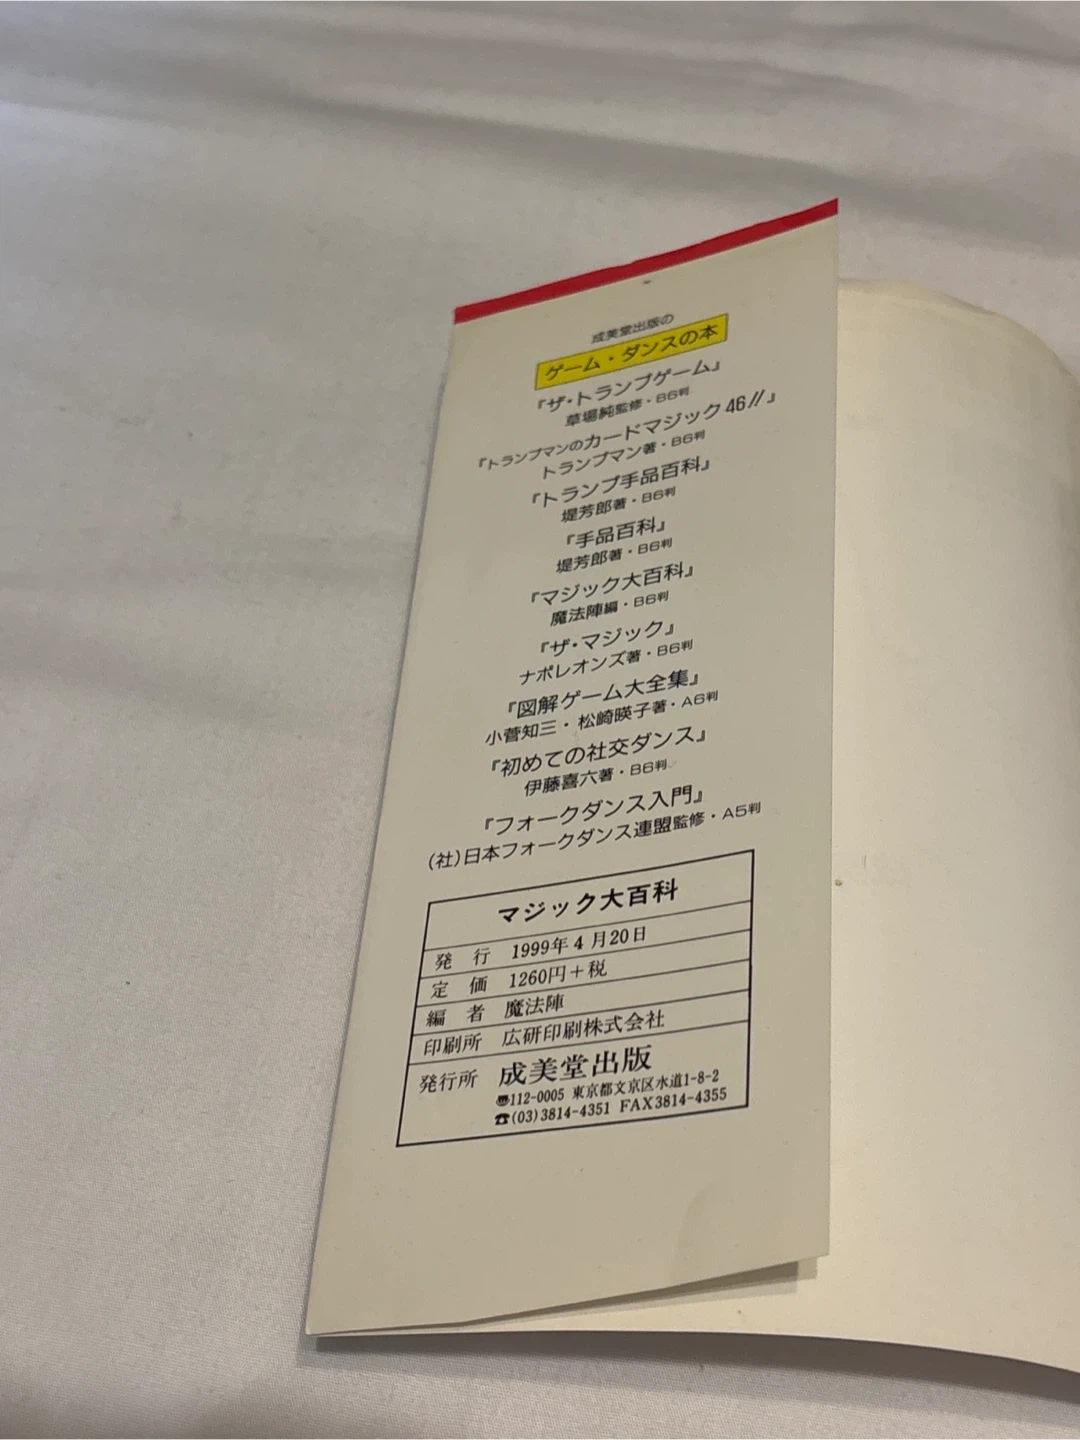 成美堂出版の
ゲーム・ダンスの本
『ザ・トランプゲーム』
草場純監修・B6判
『トランプマンのカードマジック46//』
トランプマン著・B6判
『トランプ手品百科』
堤芳郎著・B6判
『手品百科』
堤芳郎著・B6判
『マジック大百科』
魔法陣編・B6判
『ザ・マジック』
ナポレオンズ著・B6判
『図解ゲーム大全集』
小菅知三・松崎暎子著・A6判
『初めての社交ダンス』
伊藤喜六著・B6判
『フォークダンス入門』
(社)日本フォークダンス連盟監修・A5判
マジック大百科
発　行　1999年4月20日
定　価　1260円＋税
編　者　魔法陣
印刷所　広研印刷株式会社
発行所　成美堂出版
〠112-0005 東京都文京区水道1-8-2
☎(03)3814-4351 FAX3814-4355